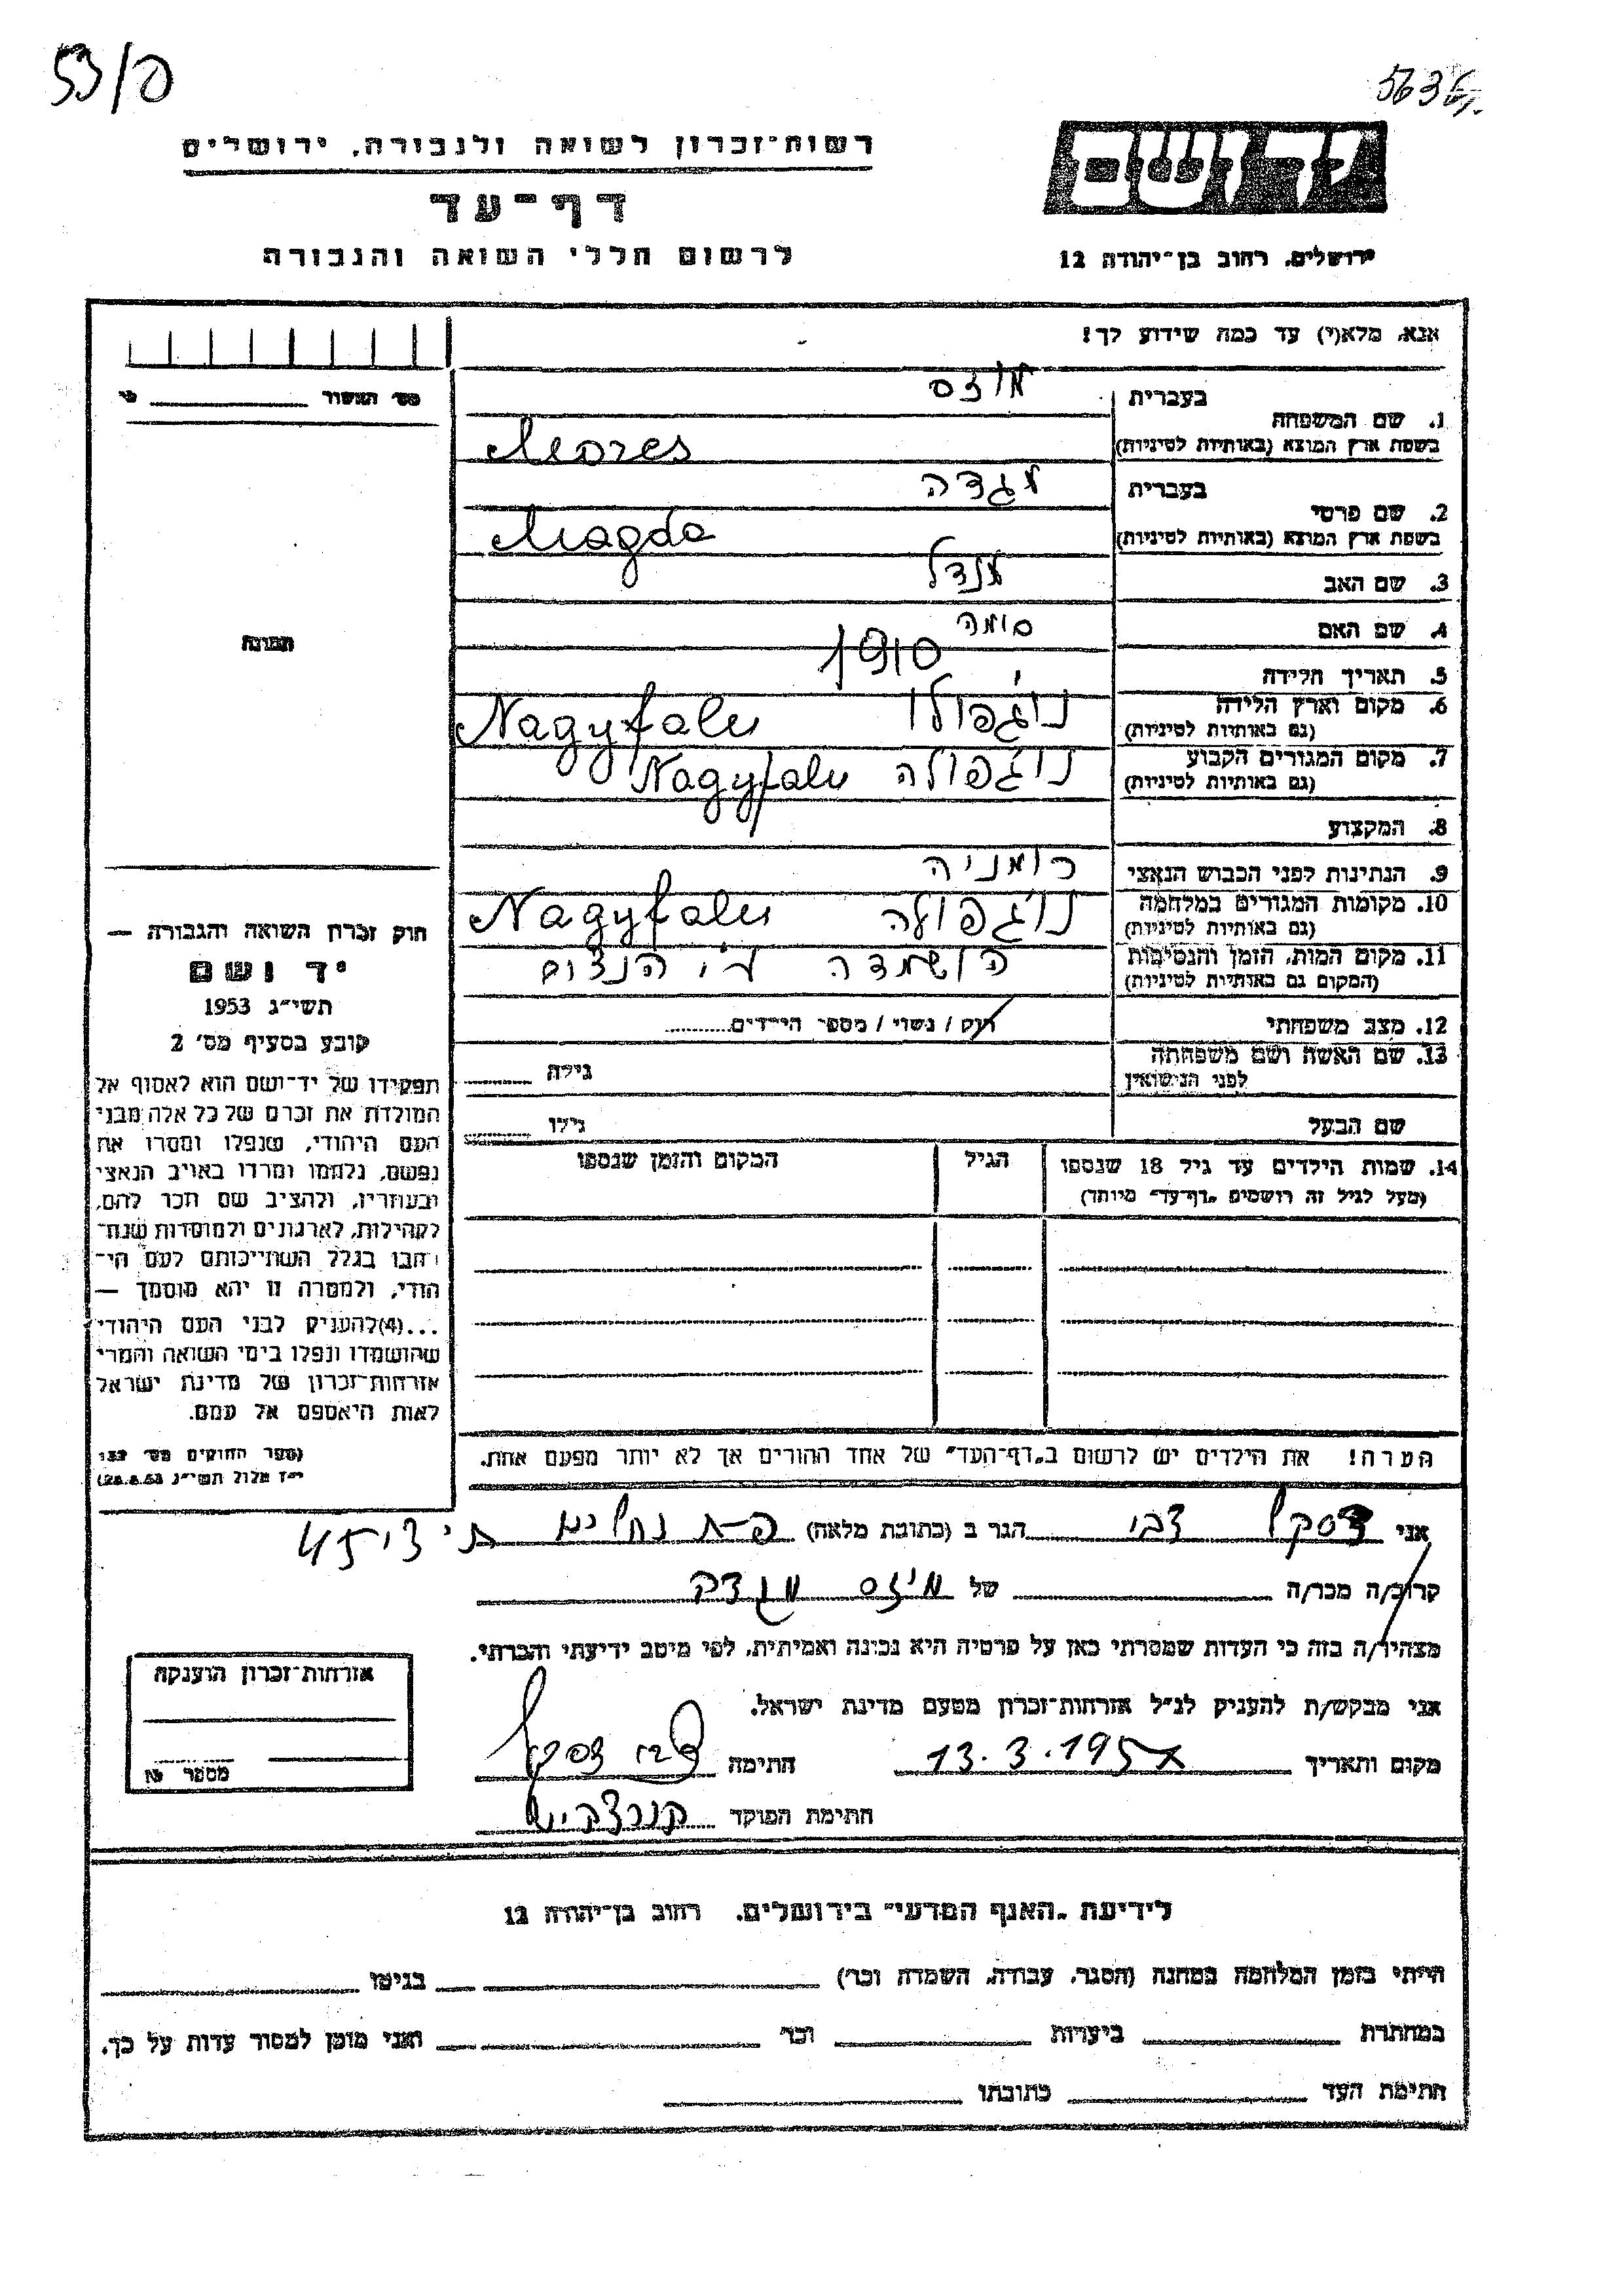 53/פ
5636
רשות־זכרון לשואה ולגבורה, ירושלים
יד ושם
דף־עד
לרשום חללי השואה והגבורה
ירושלים, רחוב בן־יהודה 12
אנא, מלא(י) עד כמה שידוע לך!
מס' האשור
תמונה
1. שם המשפחה בעברית מוזס
בשפת ארץ המוצא (באותיות לטיניות) Mozes
2. שם פרטי בעברית מגדה
בשפת ארץ המוצא (באותיות לטיניות) Magda
3. שם האב מנדל
4. שם האם
5. תאריך הלידה 1910
6. מקום וארץ הלידה נוג'פולו Nagyfalu
(גם באותיות לטיניות)
7. מקום המגורים הקבוע נוג'פולה Nagyfalu
(גם באותיות לטיניות)
8. המקצוע
9. הנתינות לפני הכבוש הנאצי רומניה
10. מקומות המגורים במלחמה נוג'פולה Nagyfalu
(גם באותיות לטיניות)
11. מקום המות, הזמן והנסיבות הושמדה ע"י הנצים
(המקום גם באותיות לטיניות)
12. מצב משפחתי רוק / נשוי / מספר הילדים
13. שם האשה ושם משפחתה גילה
לפני הנישואין
שם הבעל גילו
14. שמות הילדים עד גיל 18 שנספו הגיל המקום והזמן שנספו
(מעל לגיל זה רושמים „דף־עד" מיוחד)
הערה! את הילדים יש לרשום ב„דף־העד" של אחד ההורים אך לא יותר מפעם אחת.
חוק זכרון השואה והגבורה —
יד ושם
תשי"ג 1953
קובע בסעיף מס' 2
תפקידו של יד־ושם הוא לאסוף אל
המולדת את זכרם של כל אלה מבני
העם היהודי, שנפלו ומסרו את
נפשם, נלחמו ומרדו באויב הנאצי
ובעוזריו, ולהציב שם וזכר להם,
לקהילות, לארגונים ולמוסדות שנח־
רבו בגלל השתייכותם לעם הי־
הודי, ולמטרה זו יהא מוסמך —
...(4)להעניק לבני העם היהודי
שהושמדו ונפלו בימי השואה והמרי
אזרחות־זכרון של מדינת ישראל
לאות היאספם אל עמם.
(ספר החוקים מס' 132
י"ז אלול תשי"ג 28.8.53)
אני דסקל צבי הגר ב (כתובת מלאה)
קרוב/ה מכר/ה של מוזס מגדה
מצהיר/ה בזה כי העדות שמסרתי כאן על פרטיה היא נכונה ואמיתית, לפי מיטב ידיעתי והכרתי.
אני מבקש/ת להעניק לנ"ל אזרחות־זכרון מטעם מדינת ישראל.
מקום ותאריך 13.3.195 חתימה צבי דסקל
חתימת הפוקד
אזרחות־זכרון הוענקה
מספר №
לידיעת „האגף המדעי" בירושלים, רחוב בן־יהודה 12
הייתי בזמן המלחמה במחנה (הסגר, עבודה, השמדה וכו') בגיטו
במחתרת ביערות וכו' ואני מוכן למסור עדות על כך.
חתימת העד כתובתו